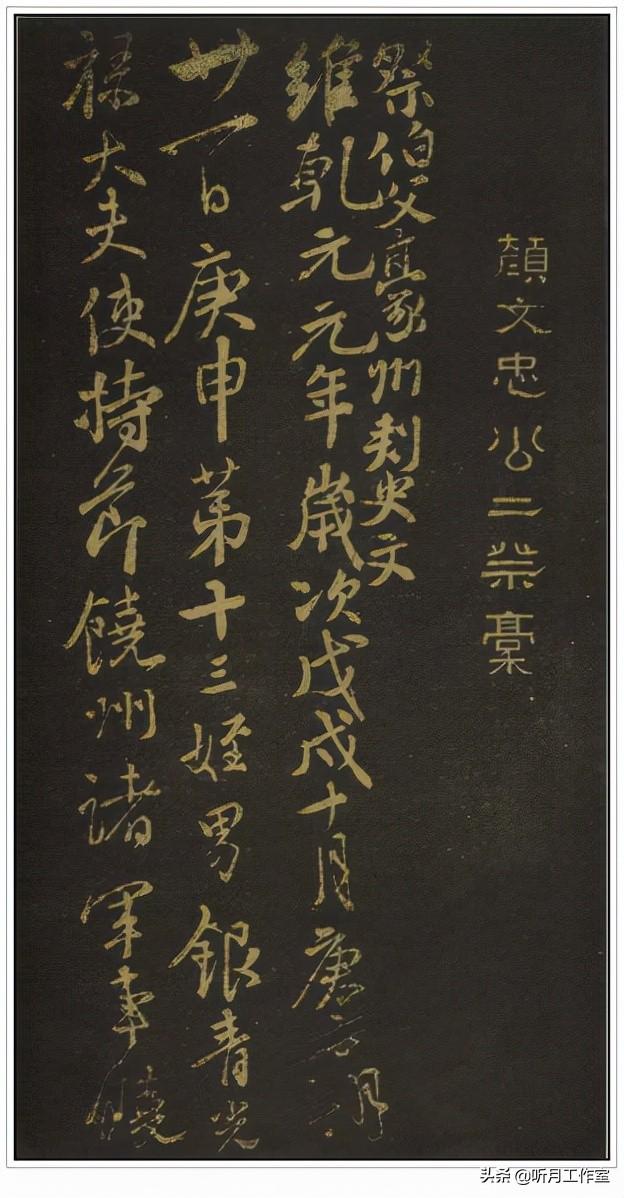 顏文忠公二祭稾
祭伯父豪州刺史文
維乾元元年歲次戊戌十月庚朔
廿一日庚申第十三姪男銀青光
祿大夫使持節饒州諸軍事饒
头条 @听月工作室